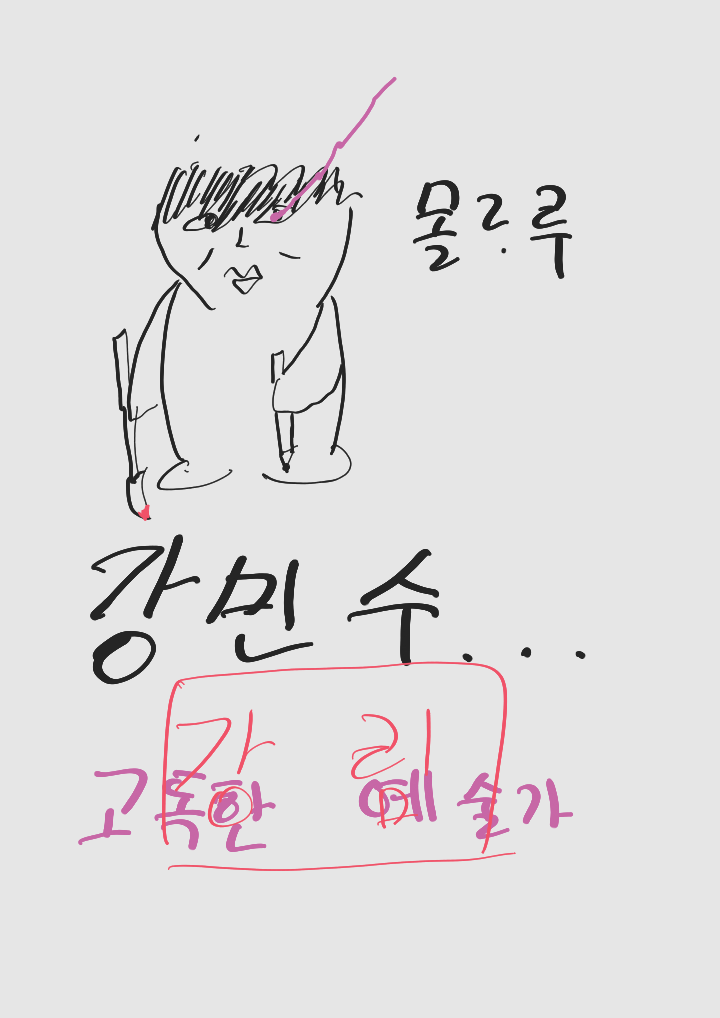 몰?루
강민수...
강림
고독한 예술가